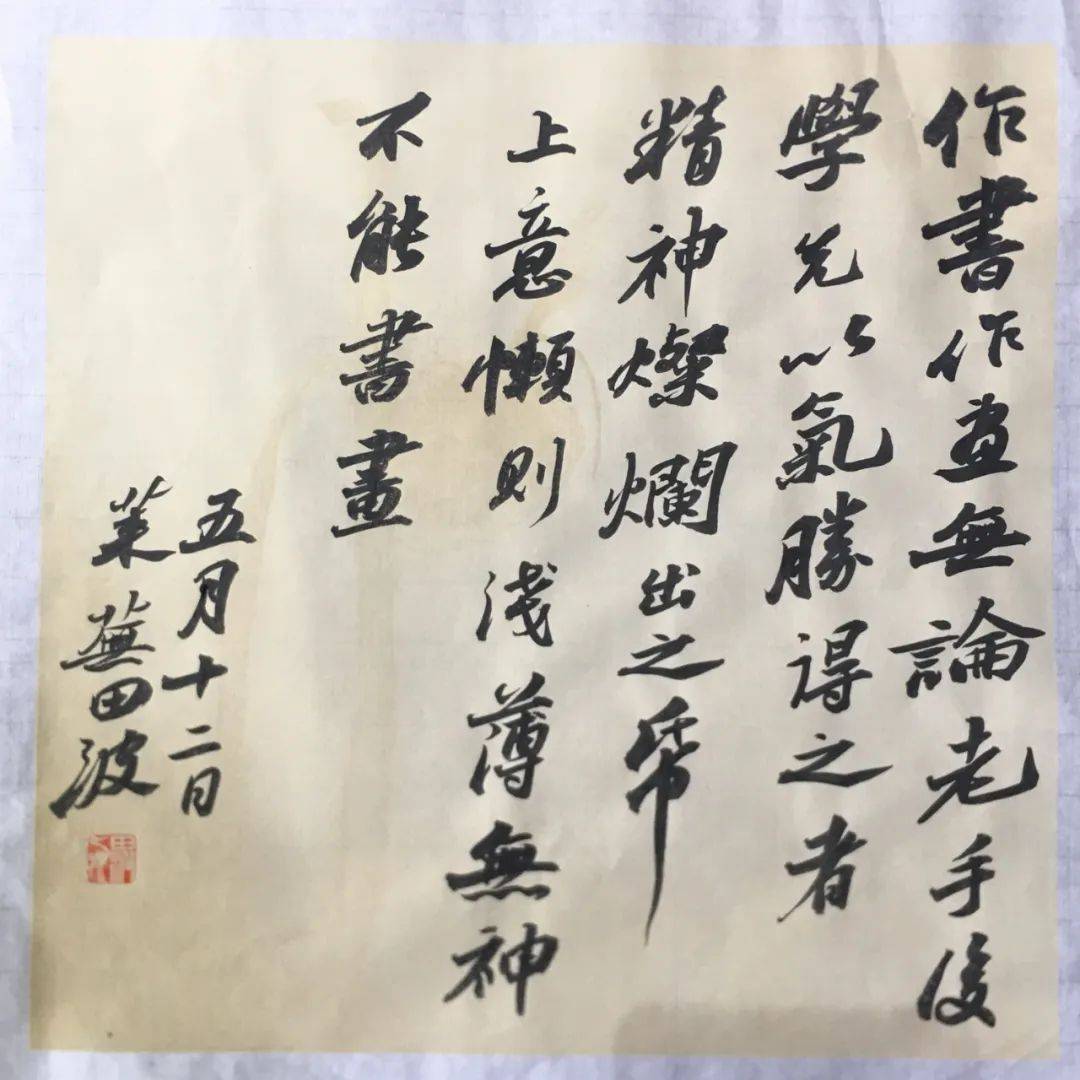 作書作畫無論老手後
學先以氣勝得之者
精神燦爛出之帋
上意懶則淺薄無神
不能書畫
五月十二日
萊蕪田波